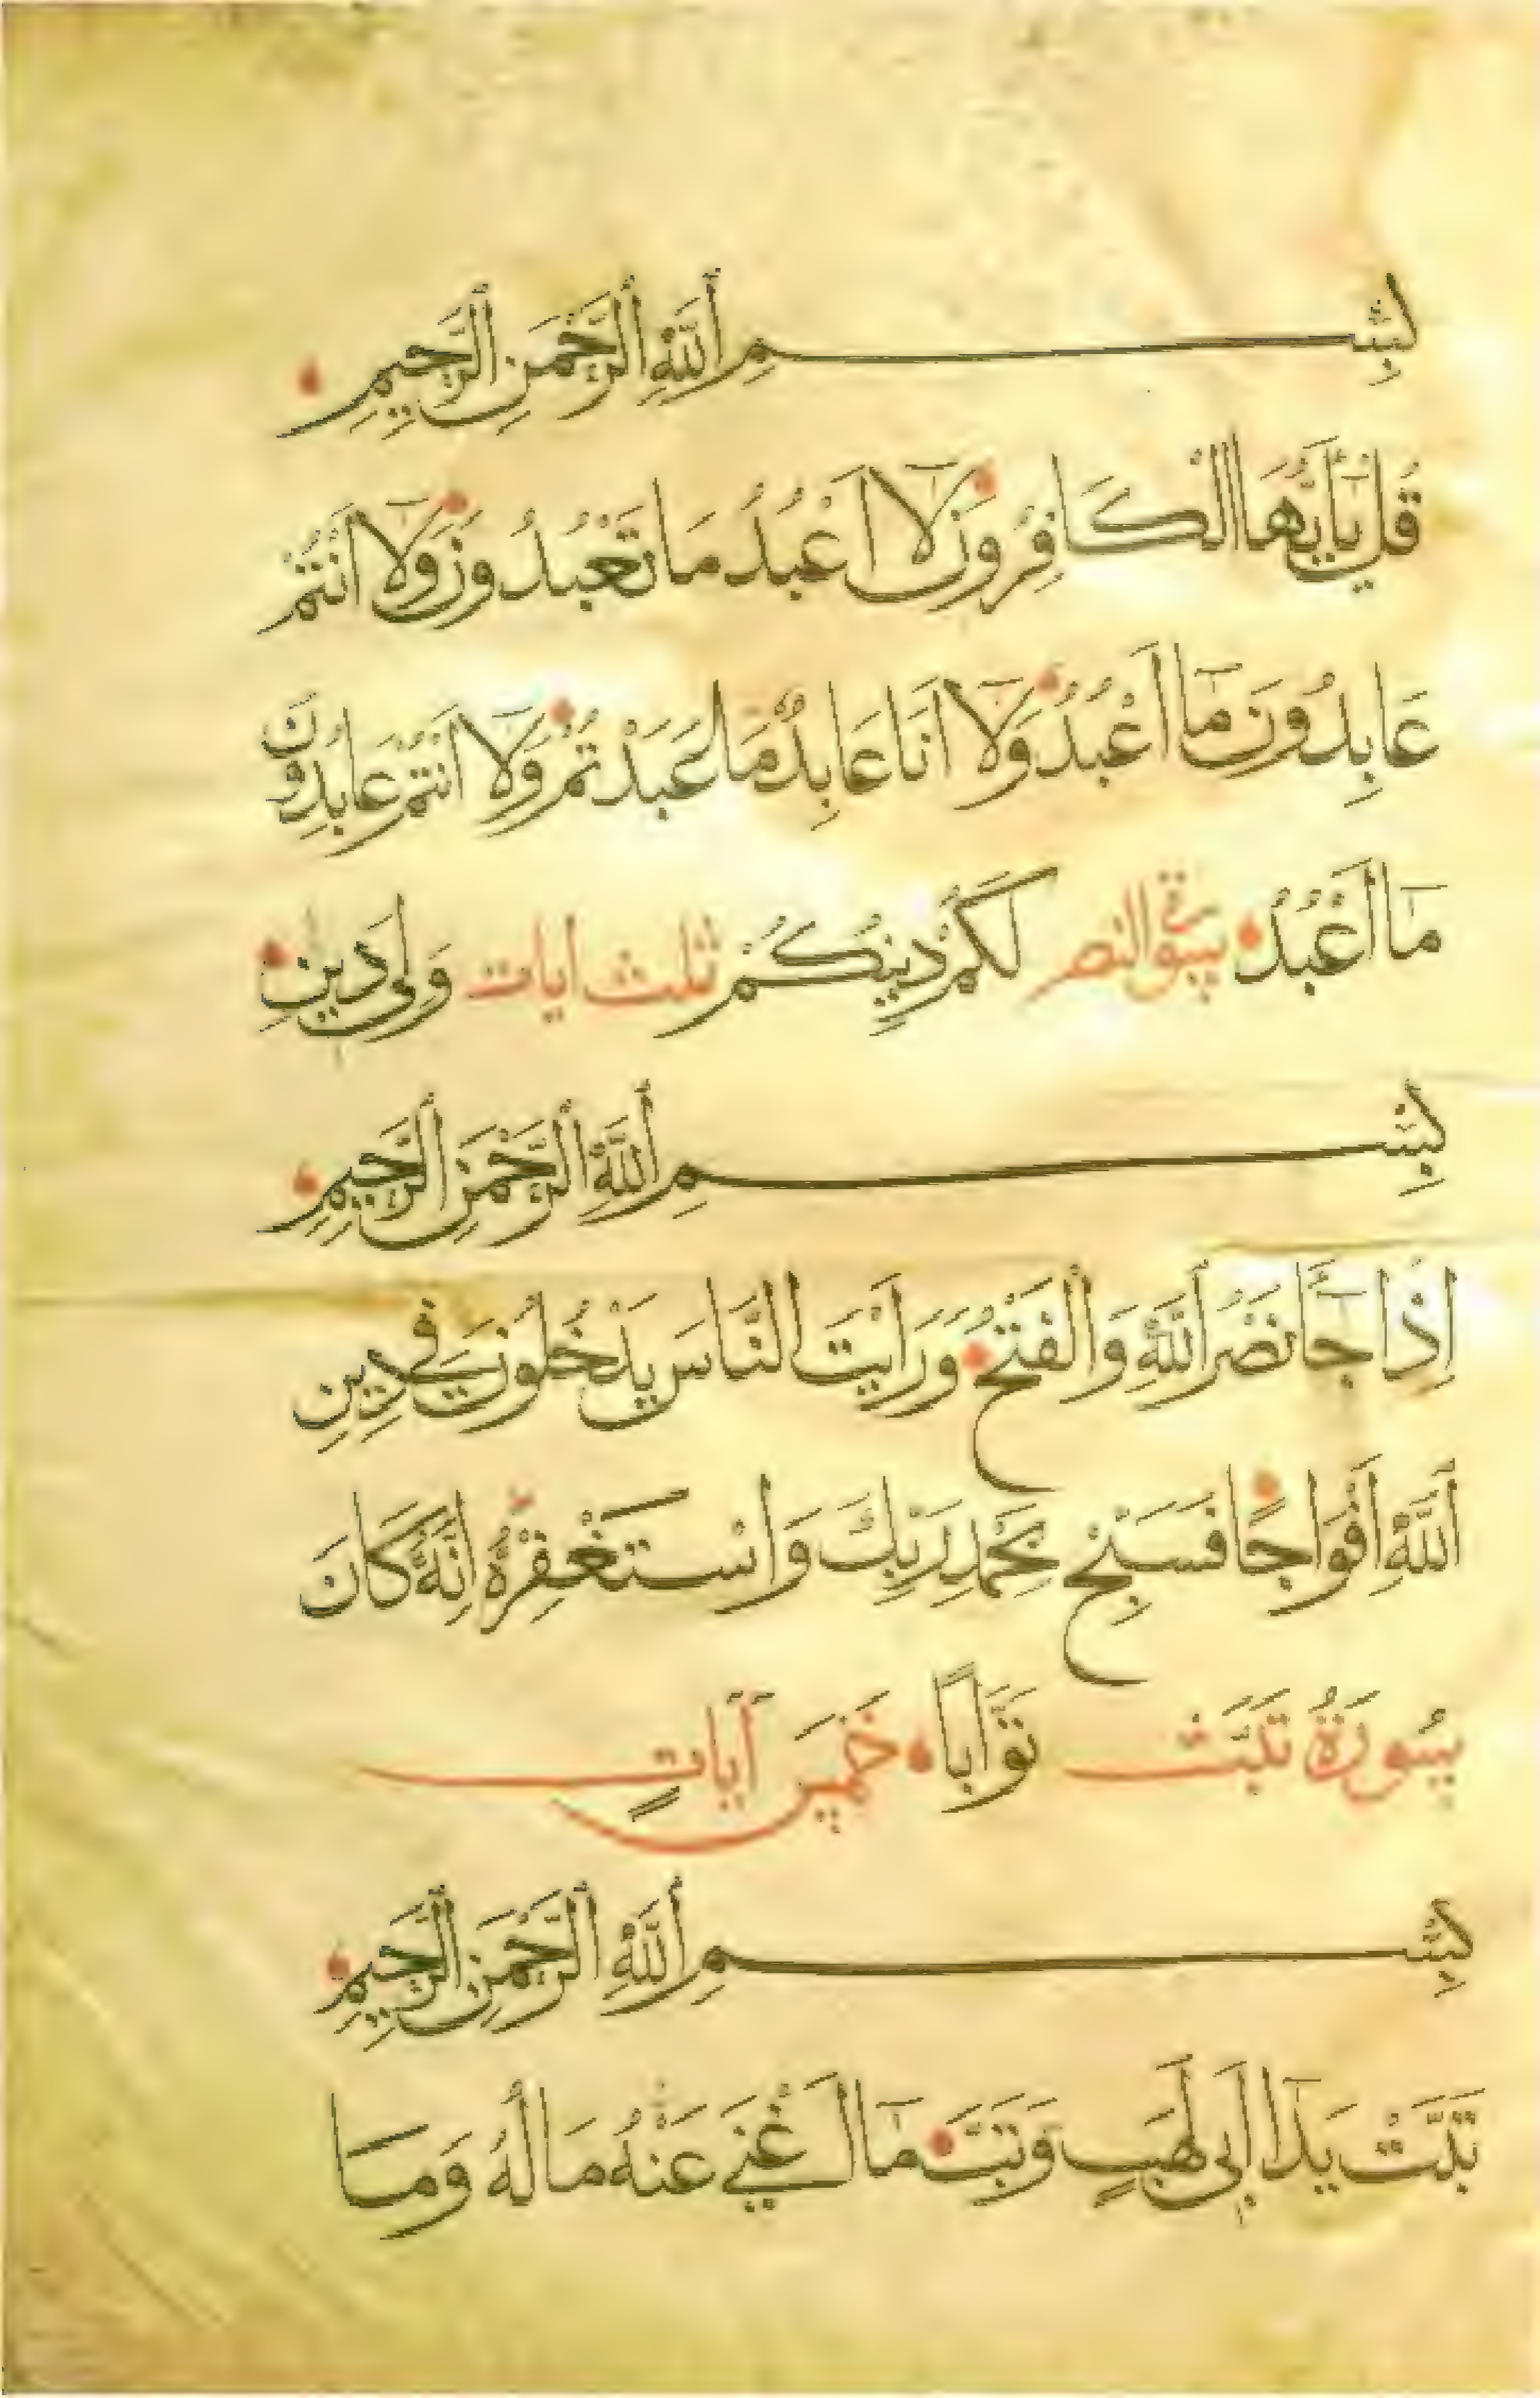 بِسْمِ ٱللَّهِ ٱلرَّحْمَنِ ٱلرَّحِيمِ
قُلْ يَآأَيُّهَا الْكَافِرُونَ لَآ اَعْبُدُ مَا تَعْبُدُونَ وَلَآ اَنْتُمْ
عَابِدُونَ مَآ اَعْبُدُ وَلَآ اَنَا عَابِدٌ مَا عَبَدْتُمْ وَلَآ اَنْتُمْ عَابِدُونَ
مَآ اَعْبُدُ سورة النصر لَكُمْ دِينُكُمْ ثلث ايات وَلِيَ دِينِ
بِسْمِ ٱللَّهِ ٱلرَّحْمَنِ ٱلرَّحِيمِ
اِذَا جَآءَ نَصْرُ ٱللَّهِ وَالْفَتْحُ وَرَاَيْتَ النَّاسَ يَدْخُلُونَ فِي دِينِ
ٱللَّهِ اَفْوَاجًا فَسَبِّحْ بِحَمْدِ رَبِّكَ وَاسْتَغْفِرْهُ اِنَّهُ كَانَ
سُورَةُ تَبَّتْ تَوَّابًا خَمْسُ آيَاتٍ
بِسْمِ ٱللَّهِ ٱلرَّحْمَنِ ٱلرَّحِيمِ
تَبَّتْ يَدَآ اَبِي لَهَبٍ وَتَبَّ مَآ اَغْنَى عَنْهُ مَالُهُ وَمَا